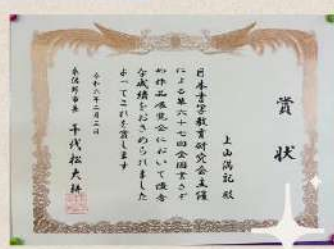 賞状
上山満記殿
日本書学教育研究会主催
による第六十七回全国書きぞ
め作品展覧会において優秀
な成績をおさめられました
よってこれを賞します
令和六年二月三日
泉佐野市長 千代松大耕